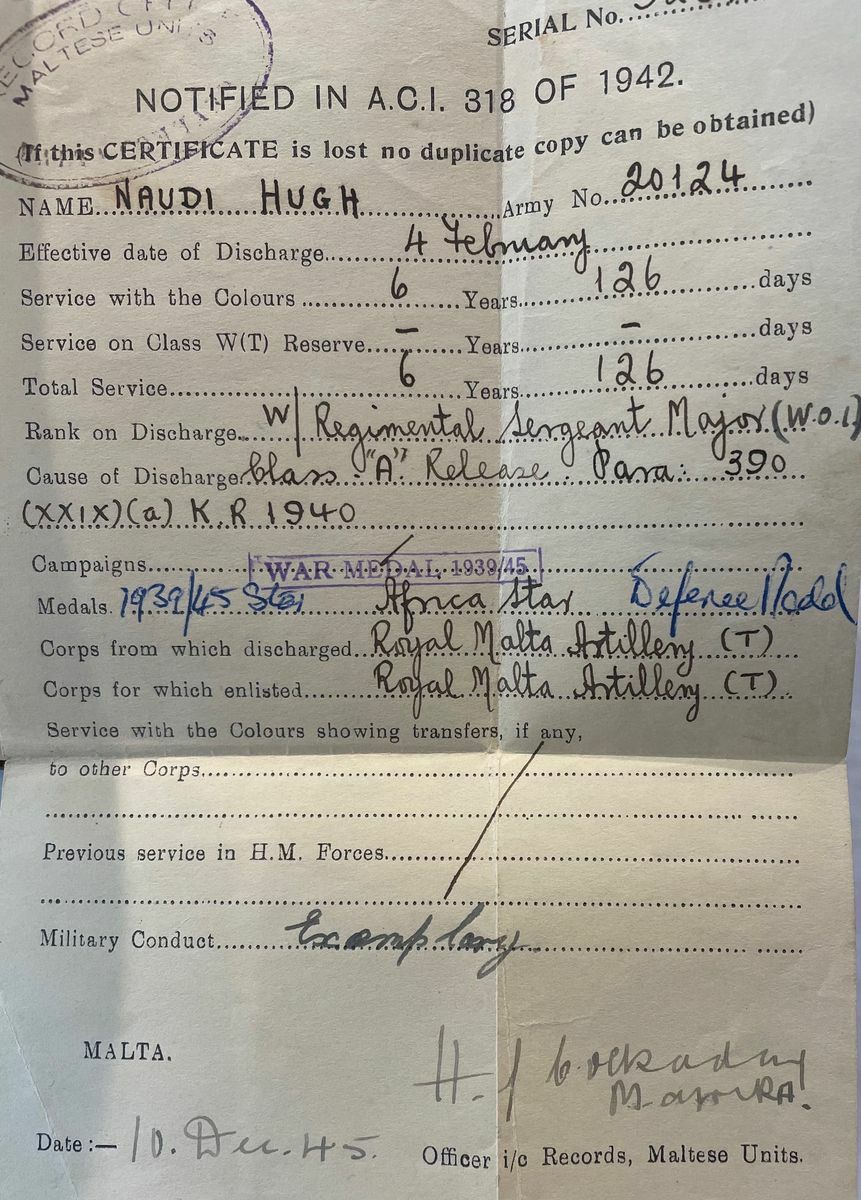 RECORD OFFICE
MALTESE UNITS
SERIAL No.
NOTIFIED IN A.C.I. 318 OF 1942.
(If this CERTIFICATE is lost no duplicate copy can be obtained)
NAME NAUDI HUGH Army No. 20124
Effective date of Discharge 4 February
Service with the Colours 6 Years 126 days
Service on Class W(T) Reserve - Years - days
Total Service 6 Years 126 days
Rank on Discharge W/ Regimental Sergeant Major (W.O.1)
Cause of Discharge Class "A" Release. Para: 390
(XXIX)(a) K.R 1940
Campaigns
WAR MEDAL 1939/45
Medals 1939/45 Star Africa Star Defence Medal
Corps from which discharged Royal Malta Artillery (T)
Corps for which enlisted Royal Malta Artillery (T)
Service with the Colours showing transfers, if any,
to other Corps
Previous service in H.M. Forces
Military Conduct Examplary
MALTA.
Major RA.
Date :— 10. Dec. 45.
Officer i/c Records, Maltese Units.